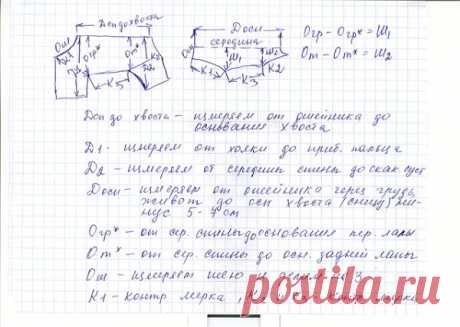 Дсп до хвоста
Досн
середина
Огр - Огр* = Ш1
От - От* = Ш2
Ош
Д1
Огр*
От*
К2
Д2
К3
К1
Ш1
Ш2
К2
Дсп до хвоста - измеряем от ошейника до
основания хвоста
Д1 - измеряем от холки до приб. пальца
Д2 - измеряем от середины спины до скак. суст
Досн - измеряем от ошейника через грудь,
живот до осн хвоста (снизу) ми-
нус 5-7 см
Огр* - от сер. спины до основание пер. лапы
От* - от сер. спины до осн. задней лапы
Ош - измеряем шею и делим на 3
К1 - контр мерка, К2
posila.com